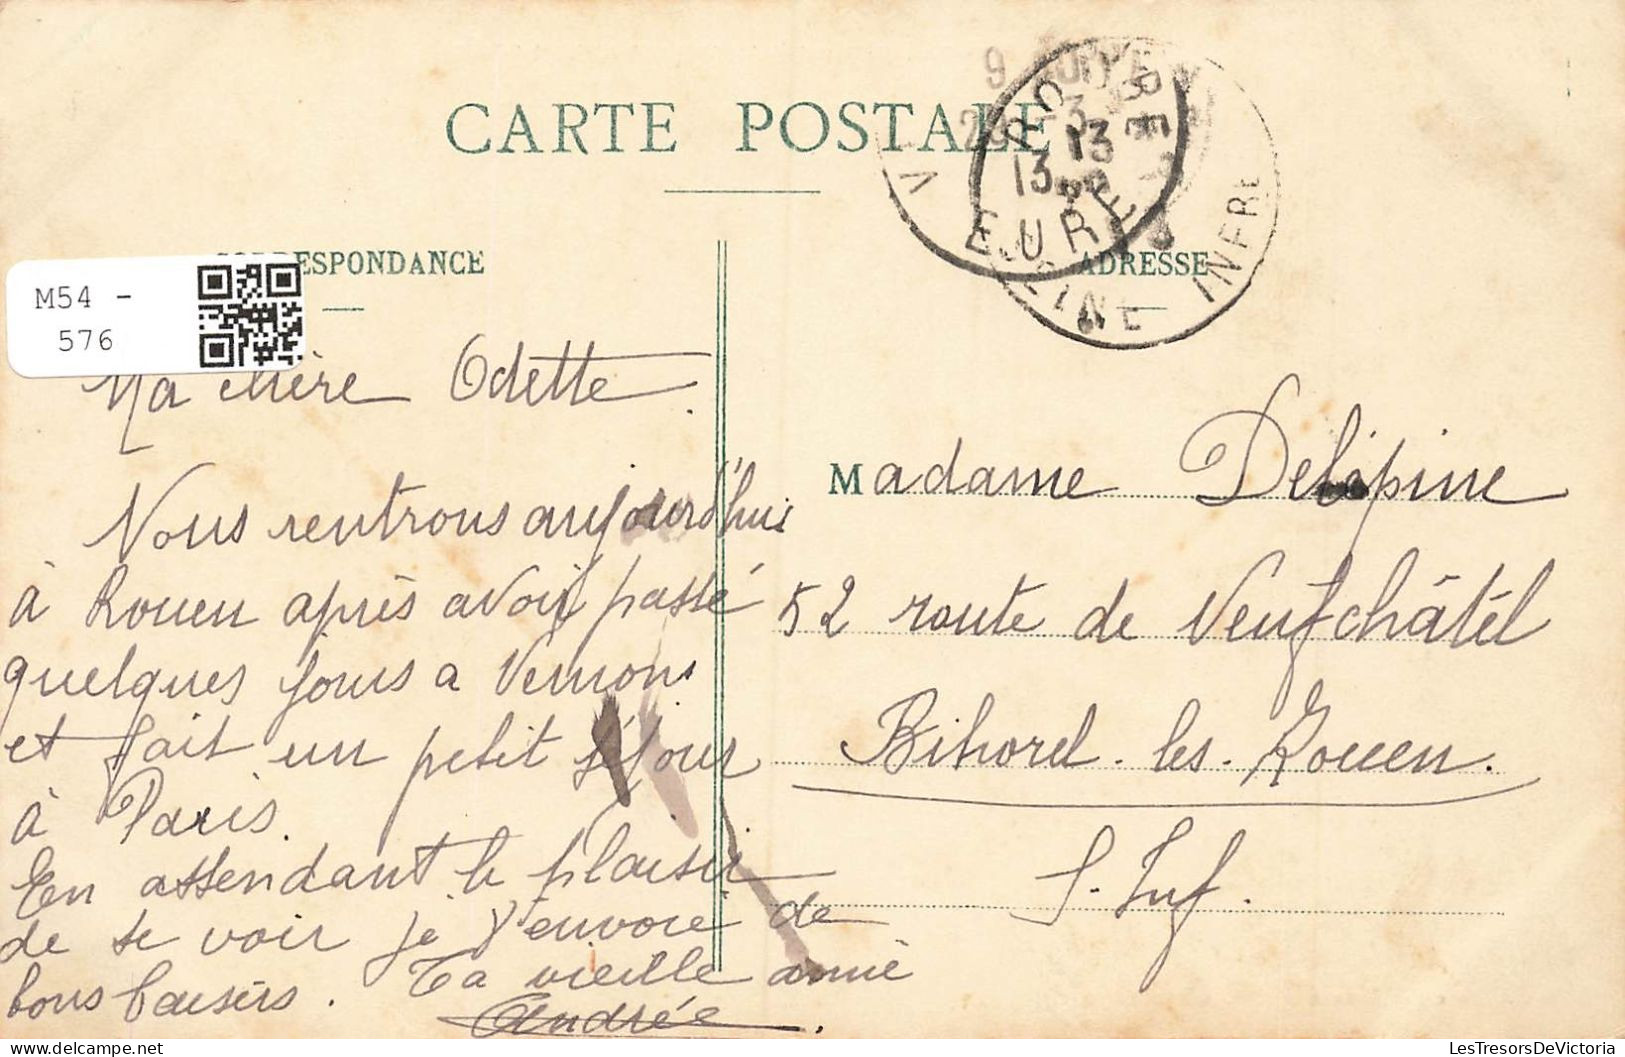 CARTE POSTALE
CORRESPONDANCE
ADRESSE
M54 -
576
EURE
13
13
INFRE
Ma chère Odette.
Nous rentrons aujourd'hui
à Rouen après avoir passé
quelques jours a Vernon
et fait un petit séjour
à Paris.
En attendant le plaisir
de te voir je t'envoie de
bons baisers. Ta vieille amie
Andrée.
Madame Delépine
52 route de Neufchâtel
Bihorel-les-Rouen.
S. Inf.
LesTresorsDeVictoria